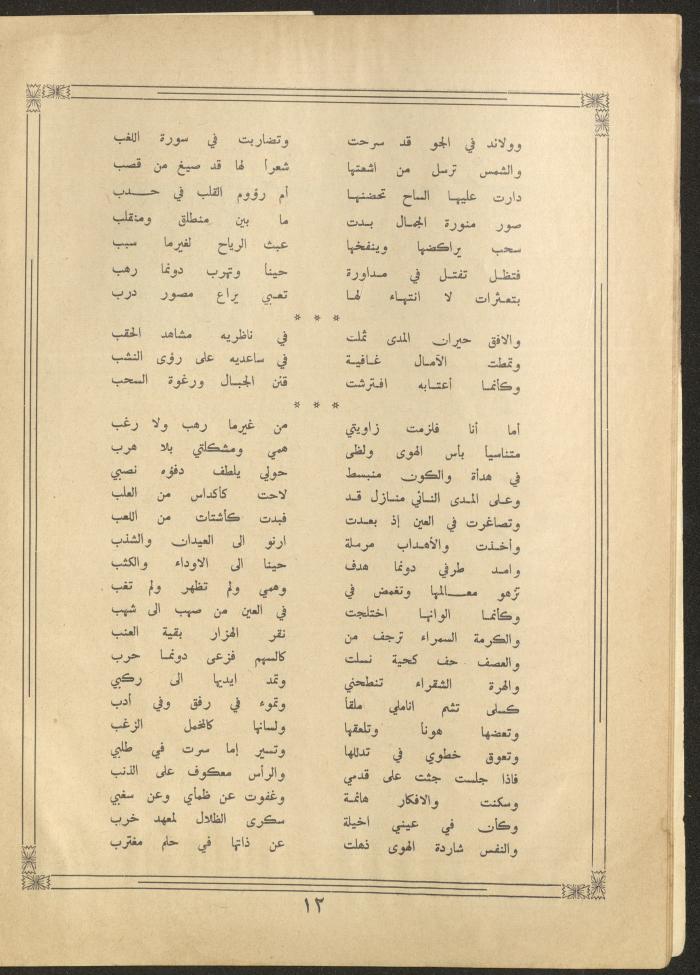 وولاند في الجو قد سرحت وتضاربت في سورة اللغب
والشمس ترسل من اشعتها شعرأ لها قد صيغ من قصب
دارت عليها الساح تحضنها أم رؤوم القلب في حدب
صور منورة الجمال بدت ما بين منطلق ومنقلب
سحب يراكضها وينفخها عبث الرياح لغيرما سبب
فتظل تفتل في مداورة حينأ وتهرب دونما رهب
بتعثرات لا انتهاء لها تعبي يراع مصور درب
* * *
والافق حيران المدى ثملت في ناظريه مشاهد الحقب
وتمطت الآمال غافية في ساعديه على رؤى النشب
وكأنما أعتابه افترشت قنن الجبال ورغوة السحب
* * *
أما أنا فلزمت زاويتي من غيرما رهب ولا رغب
متناسيأ بأس الهوى ولظى همي ومشكلتي بلا هرب
في هدأة والكون منبسط حولي يلطف دفؤه نصبي
وعلى المدى النائي منازل قد لاحت كأكداس من العلب
وتصاغرت في العين إذ بعدت فبدت كأشتات من اللعب
وأخذت والأهداب مرملة ارنو الى العيدان والشذب
وامد طرفي دونما هدف حينا الى الاوداء والكثب
تزهو معالمها وتغمض في وهمي ولم تظهر ولم تغب
وكأنما الوانها اختلجت في العين من صهب الى شهب
والكرمة السمراء ترجف من نقر الهزار بقية العنب
والعصف حف كحية نسلت كالسهم فزعى دونما حرب
والهرة الشقراء تنطحني وتمد ايديها الى ركبي
كسلى تشم اناملي ملقأ وتموء في رفق وفي أدب
وتعضها هونأ وتلعقها ولسانها كالمخمل الزغب
وتعوق خطوي في تدللها وتسير إما سرت في طلبي
فاذا جلست جثت على قدمي والرأس معكوف على الذنب
وسكنت والافكار هائمة وغفوت عن ظمأي وعن سغبي
وكأن في عيني اخيلة سكرى الظلال لمعهد خرب
والنفس شاردة الهوى ذهلت عن ذاتها في حلم مغترب
١٢